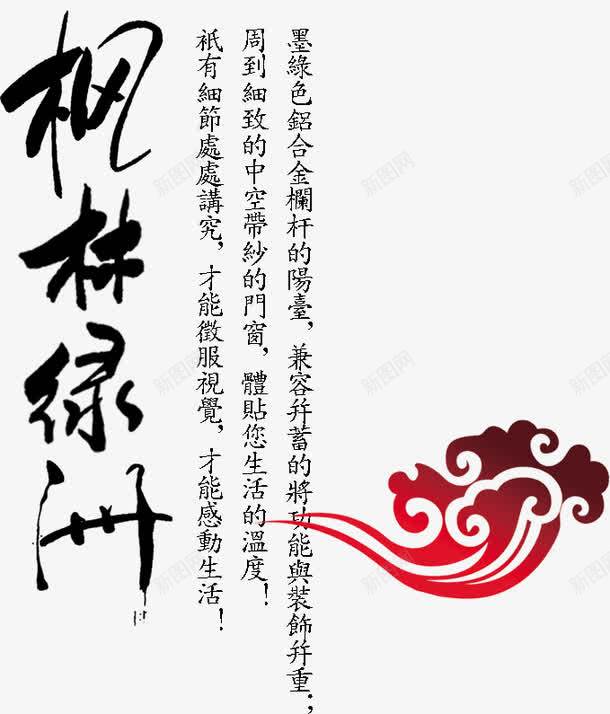 墨綠色鋁合金欄杆的陽臺，兼容幷蓄的將功能與裝飾幷重.；
周到細致的中空帶紗的門窗，體貼您生活的溫度！
衹有細節處處講究，才能徵服視覺，才能感動生活！
枫林绿洲
新图网